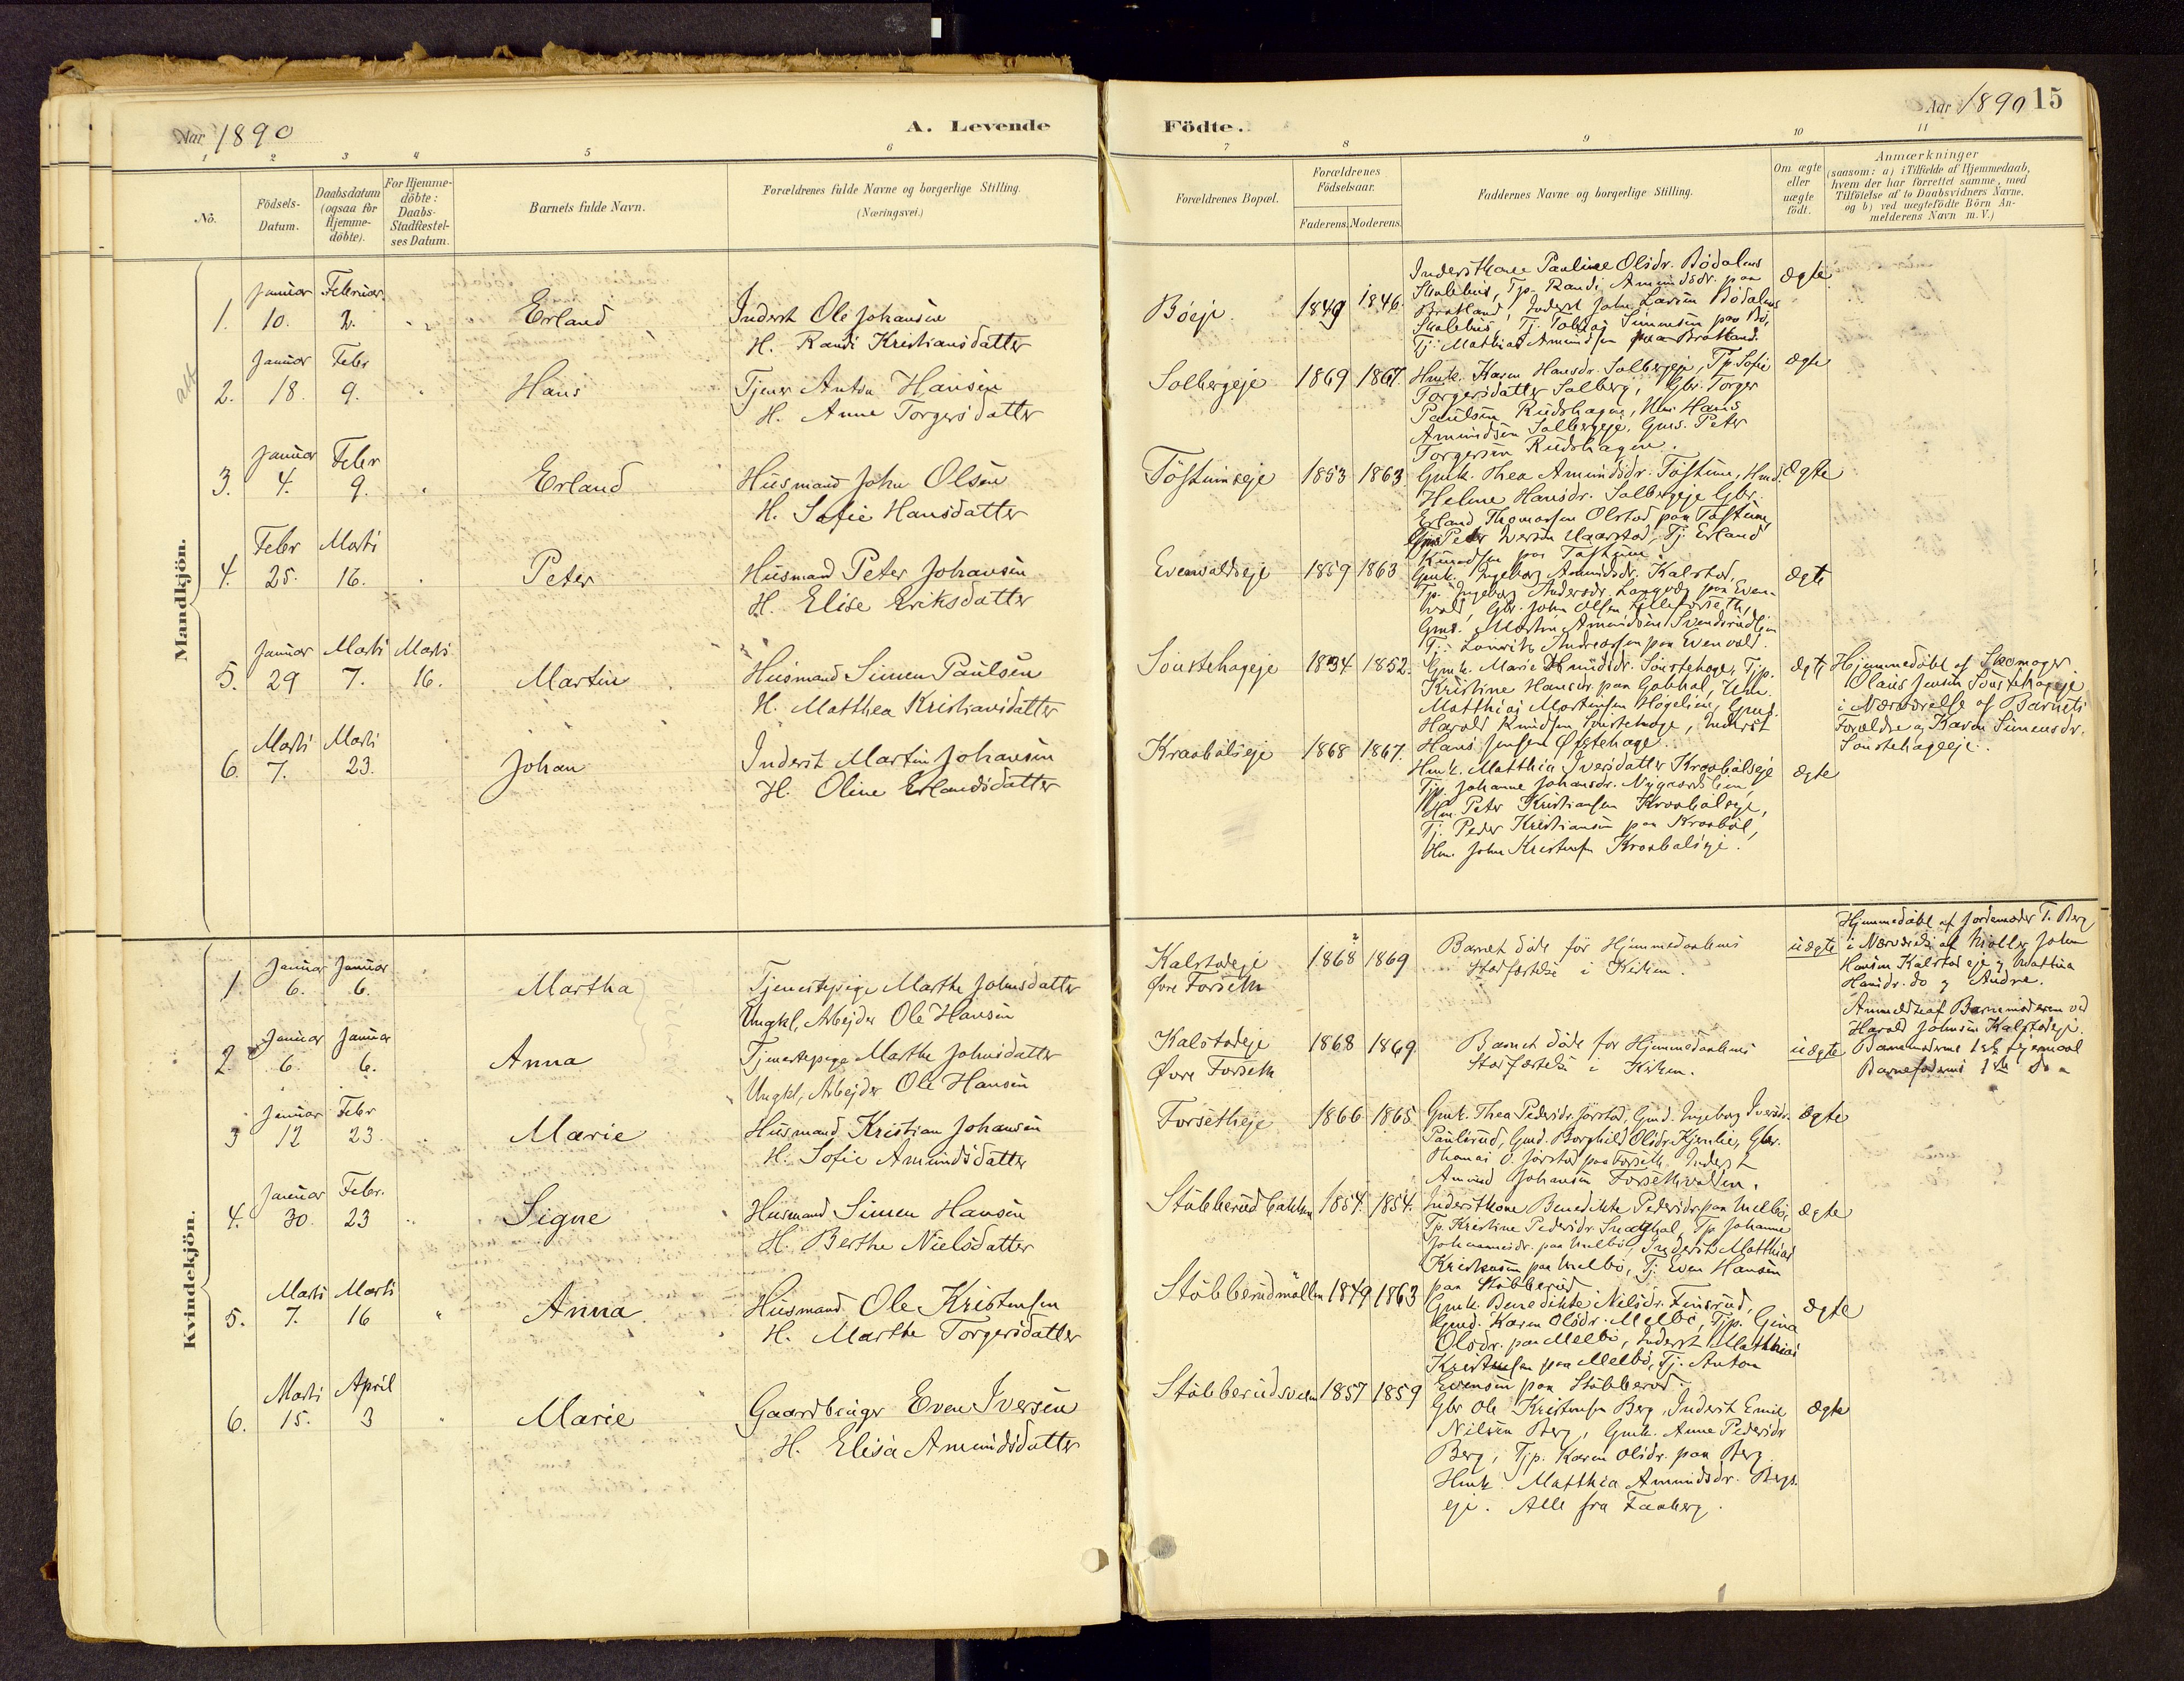 Aar 1890
A. Levende
1 2 3 4 5 6
Nô.
Födsels-
Datum.
Daabsdatum
(ogsaa for
Hjemme-
döbte).
For Hjemme-
döbte:
Daabs-
Stadfæstel-
ses Datum.
Barnets fulde Navn.
Forældrenes fulde Navne og borgerlige Stilling.
(Næringsvei.)
Mandkjön.
Januar Februar
1. 10. 2. Erland Inderst Ole Johansen
H. Randi Kristiansdatter
Januar Febr
2. 18. 9. Hans Tjener Anton Hansen
H. Anne Torgersdatter
Januar Febr
3. 4. 9. Erland Husmand John Olsen
H. Sofie Hansdatter
Febr Marti
4. 25. 16. Peter Husmand Peter Johansen
H. Elise Eriksdatter
Januar Marti Marti
5. 29 7. 16. Martin Husmand Simen Paulsen
H. Matthea Kristiansdatter
Marti Marti
6. 7. 23. Johan Inderst Martin Johansen
H. Oline Erlandsdatter
Kvindekjön.
Januar Januar
1. 6. 6. Martha Tjenestepige Marthe Johnsdatter
Ungkl, Arbejder Ole Hansen
Januar Januar
2. 6. 6. Anna Tjenestepige Marthe Johnsdatter
Ungkl, Arbejder Ole Hansen
Januar Febr
3 12 23. Marie Husmand Kristian Johansen
H. Sofie Amundsdatter
Januar Febr.
4. 30. 23 Signe Husmand Simen Hansen
H. Berthe Nielsdatter
Marti Marti
5. 7. 16 Anna Husmand Ole Kristensen
H. Marthe Torgersdatter
Marti April
6. 15. 3 Marie Gaardbruger Even Iversen
H. Elisa Amundsdatter
Födte.
Aar 1890 15
7 8 9 10 11
Forældrenes Bopæl.
Forældrenes
Födselsaar.
Faderens. Moderens.
Faddernes Navne og borgerlige Stilling.
Om ægte
eller
uægte
födt.
Anmærkninger
(saasom: a) i Tilfælde af Hjemmedaab,
hvem der har forrettet samme, med
Tilföielse af to Daabsvidners Navne,
og b) ved uægtefödte Börn An-
melderens Navn m. V.)
Böeje 1849 1846. Inderstkone Pauline Olsdr. Bödalens ægte
Skolehus, Tp. Randi Amundsdr. paa
Brotland, Inderst John Larsen Bödalens
Skolehus, Tj. Tobias Simensen paa Bö,
Tj. Mathias Amundsen paa Brotland.
Solbergeje 1869 1867. Hmk. Karen Hansdr. Solbergeje, Tp. Sofie ægte
Torgersdatter Solberg, Gbr. Torger
Paulsen Rudshagen, Hm. Hans
Amundsen Solbergeje, Gms. Peter
Torgersen Rudshagen.
Töftumseje 1853 1863 Gmk. Thea Amundsdr. Töftum, Hmd. ægte
Helene Hansdr. Solbergeje Gbr.
Erland Thomassen Olstad paa Töftum,
Gms Peder Iversen Maarstad, Tj. Erland
Knudsen paa Töftum.
Evenvoldseje 1859 1863 Gmk. Ingeborg Amundsdr. Kalstad, ægte
Tp. Ingeborg Andersdr. paa Even-
vold, Gbr. John Olsen
Gms. Martin Amundsen Svendsrudlien
Tj. Lauritz Andreassen paa Evenvold.
Soustehageje 1834 1852. Gmk. Marie Knudsdr. Soustehage, Tjp. ægte
Kristine Hansdr. paa Hm.
Matthias Mortensen Högelien, Gms.
Harald Knudsen Soustehage, Inderst
Hans Jensen Östehage.
Hjemmedöbt af Skomager
Olaus Jensen Soustehageje
i Nærværelse af Barnets
Forældre og Karen Simensdr.
Soustehageeje.
Kraabölseje 1868 1867. Hmk. Matthia Iversdatter Kraabölseje ægte
Tjp. Johanne Johansdr. Nygaardslien,
Hm. Peter Kristiansen Kraabölseje,
Tj. Peder Kristiansen paa Kraaböl,
Hm. John Kristensen Kraabölseje.
Kalstadeje
Övre Forseth 1868 1869 Barnet döde för Hjemmedaabens
Stadfæstelse i Kirken. uægte
Hjemmedöbt af Jordemoder T. Berg
i Nærværelse af Möller John
Hansen Kalstadeje og Mathea
Hansdr. do og Andre.
Kalstadeje
Övre Forseth 1868 1869. Barnet döde for Hjemmedaabens
Stadfæstelse i Kirken. uægte
Anmeldt af Barnemoderen ved
Harald Johnsen Kalstadeje.
Barnemoderens 1ste Lejermaal
Barnefaderens 1ste do
Forsetheje 1866 1865 Gmk. Thea Pedersdr. Jörstad, Gmd. Ingeborg Iversdr. ægte
Paulsrud, Gmd. Borghild Olsdr. Kjenlie, Gbr.
Thomas O. Jörstad paa Forseth, Inderst
Amund Johansen Forsethvolden.
Stubberudbakken 1854. 1854. Inderstkone Benedikte Pedersdr. paa Melbö, ægte
Tp. Kristine Pedersdr. Tp. Johanne
Johannesdr. paa Melbö, Inderst Matthias
Kristensen paa Melbö, Tj. Even Hansen
paa Stubberud.
Stubberudmöllen 1849 1863 Gmk. Benedikte Nilsdr. Finsrud, ægte
Gmd. Karen Olsdr. Melbö, Tjp. Gina
Olsdr. paa Melbö, Inderst Matthias
Kristensen paa Melbö, Tj. Anton
Evensen paa Stubberud.
Stubberudsveen 1857 1859 Gbr Ole Kristensen Berg, Inderst Emil ægte
Nilsen Berg, Gmk. Anne Pedersdr
Berg, Tjp. Karen Olsdr. paa Berg
Hmk. Matthia Amundsdr. Bergs-
eje. Alle fra Faaberg.